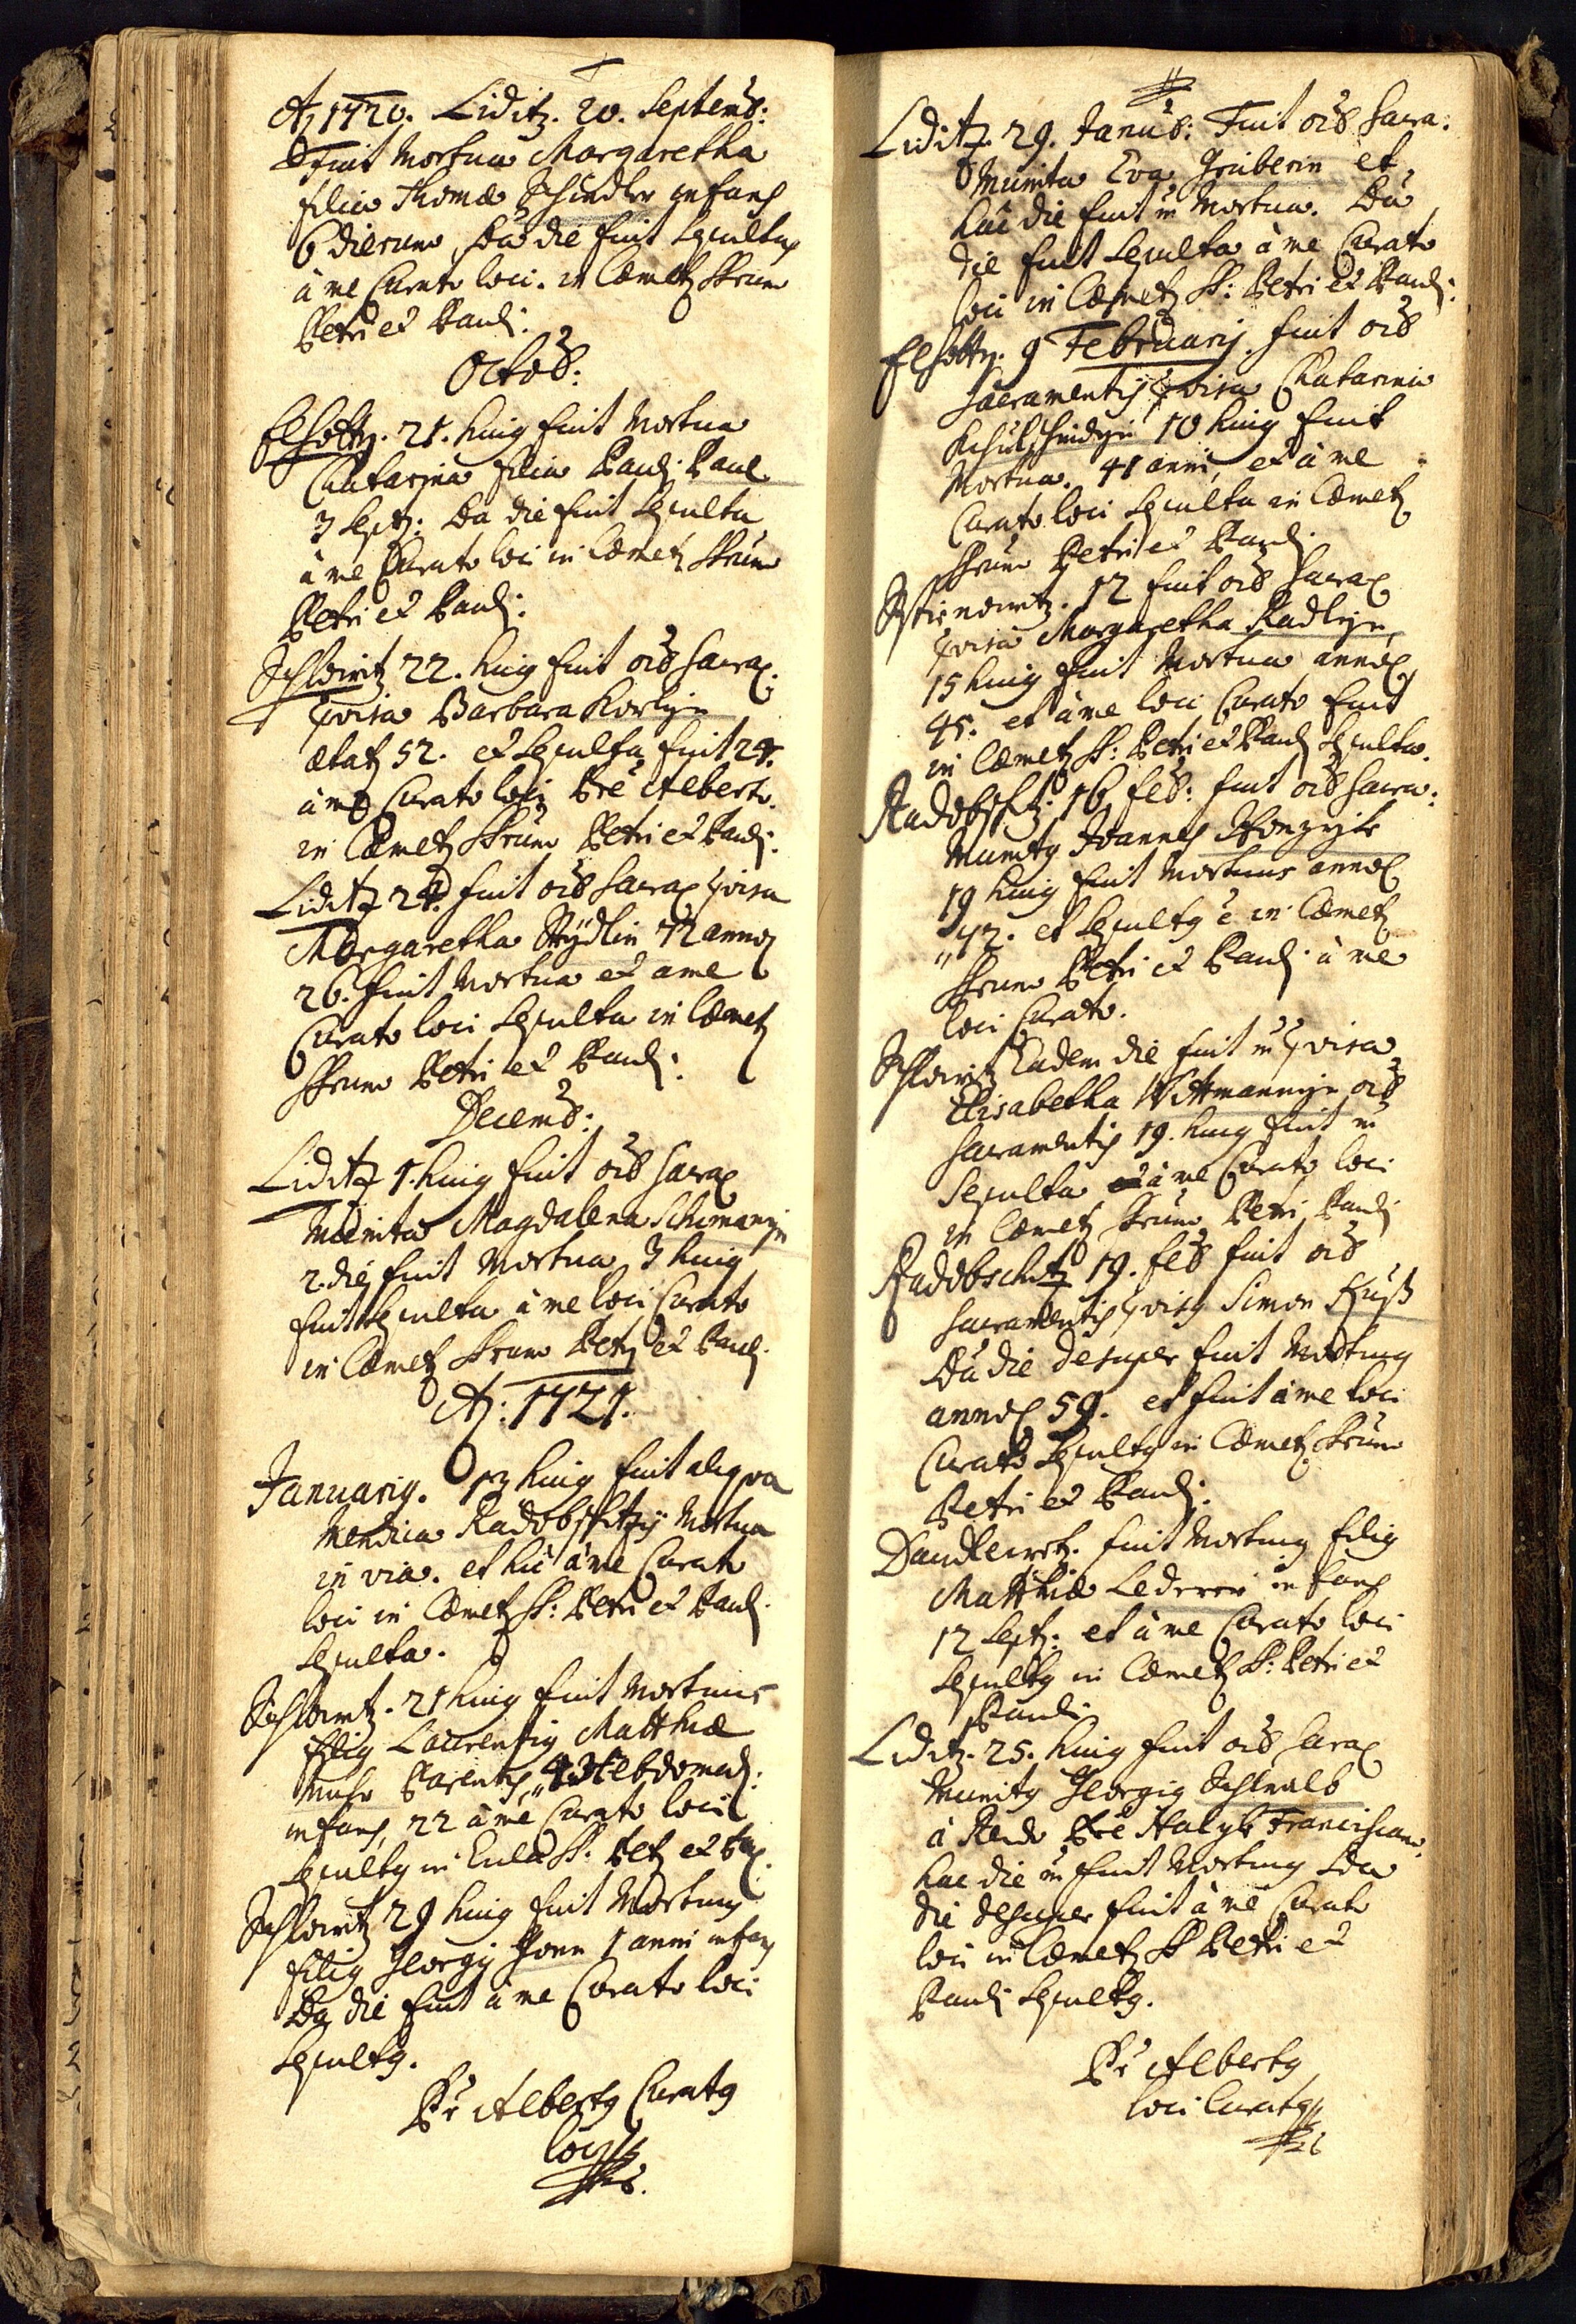 Ao 1720. Liditz. 20. Septemb:
Fuit Mortua Margaretha
filia Thomæ Schindler infans
6 dierum, Ea die fuit Sepulta
à me Curato loci. in Cæmet SSrum
Petri et Pauli.
Octob:
Elhotty. 21. huig fuit Mortua
Catharina filia Pauli Paul
3 Sept: Ea die fuit Sepulta
à me Curato loci in Cæmet SSrum
Petri et Pauli.
Schlowitz 22. huig fuit oib Sacra
pvisa Barbara
ætat 52. et Sepulta fuit 24.
à me Curato loci Pre Alberto.
in Cæmet SSrum Petri et Pauli.
Liditz 24. fuit oib Sacra pvisa
Margaretha 72 anno
26. fuit Mortua et a me
Curato loci Sepulta in Cæmet
SSrum Petri et Pauli.
Decemb:
Liditz 1. huig fuit oib Sacra
Munita Magdalena Schimanyn
2. die fuit Mortua 3 huig
fuit Sepulta à me loci Curato
in Cæmet SSrum Petri et Pauli.
Ao: 1721.
Januarij. 13 huig fuit aliqva
Mendica Radobschitzij Mortua
in via. et hic à me Curato
loci in Cæmet SS: Petri et Pauli
Sepulta.
Schlowitz. 21 huig fuit Mortuus
filig Laurentig Matthiæ
Parentis, 4 Hebdomad:
infans, 22 à me Curato loci
Sepultg in SS: Pet et Pau.
Schlowitz 29 huig fuit Mortuus
filig Georgij 1 anni infans
Ea die fuit à me Curato loci
Sepultg.
Pr Albertg Curatg
loci
Liditz. 29. Janub: Fuit oib Sacra:
Munita Eva Gruberin et
hac die fuit Mortua. Ea
die fuit Sepulta à me Curato
loci in Cæmet SS: Petri et Pauli.
Elhotty. 9 Februarij. fuit oib
Sacramentis pvisa Catharina
10 huig fuit
Mortua. 41 anni, et à me
Curato loci Sepulta in Cæmet
SSrum Petri et Pauli.
12 fuit oib Sacra
pvisa Margaretha Radlyn
15 huig fuit Mortua anno
45. et à me loci Curato fuit
in Cæmet SS: Petri et Pauli Sepulta.
Radobschtz. 16 feb: fuit oib Sacra:
Munitg Joannes
19 huig fuit Mortuus anno
72. et Sepultg è in Cæmet
SSrum Petri et Pauli à me
loci Curato.
Schlowitz Eadem die fuit pvisa
Elisabetha Wittmannyn oib
Sacramentis 19. huig fuit
Sepulta à me Curato loci
in Cæmet SSrum Petri Pauli
Radobschitz 19. feb fuit oib
Sacramentis pvisg Simon
Ea die desuper fuit Mortuug
anno 59. et fuit à me loci
Curato Sepultg in Cæmet SSrum
Petri et Pauli.
fuit Mortuug filig
Matthiæ Lederer infans
12 Sept: et à me Curato loci
Sepultg in Cæmet SS: Petri et
Pauli
Liditz. 25. huig fuit oib Sacra
Munitg Georgig Schwalb
à Rendo Pre Franciscano.
hac die fuit Mortuug Ea
die desuper fuit à me Curato
loci in Cæmet SS Petri et
Pauli Sepultg.
Pr Albertg
loci Curatg